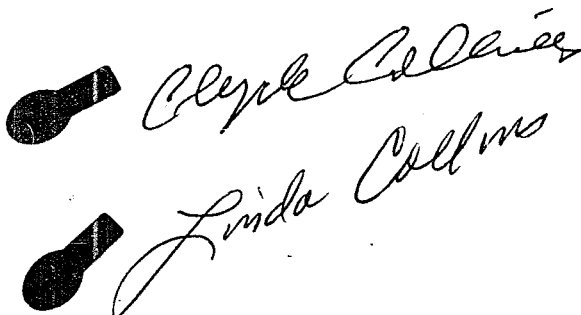 Clyde Collins
Linda Collins